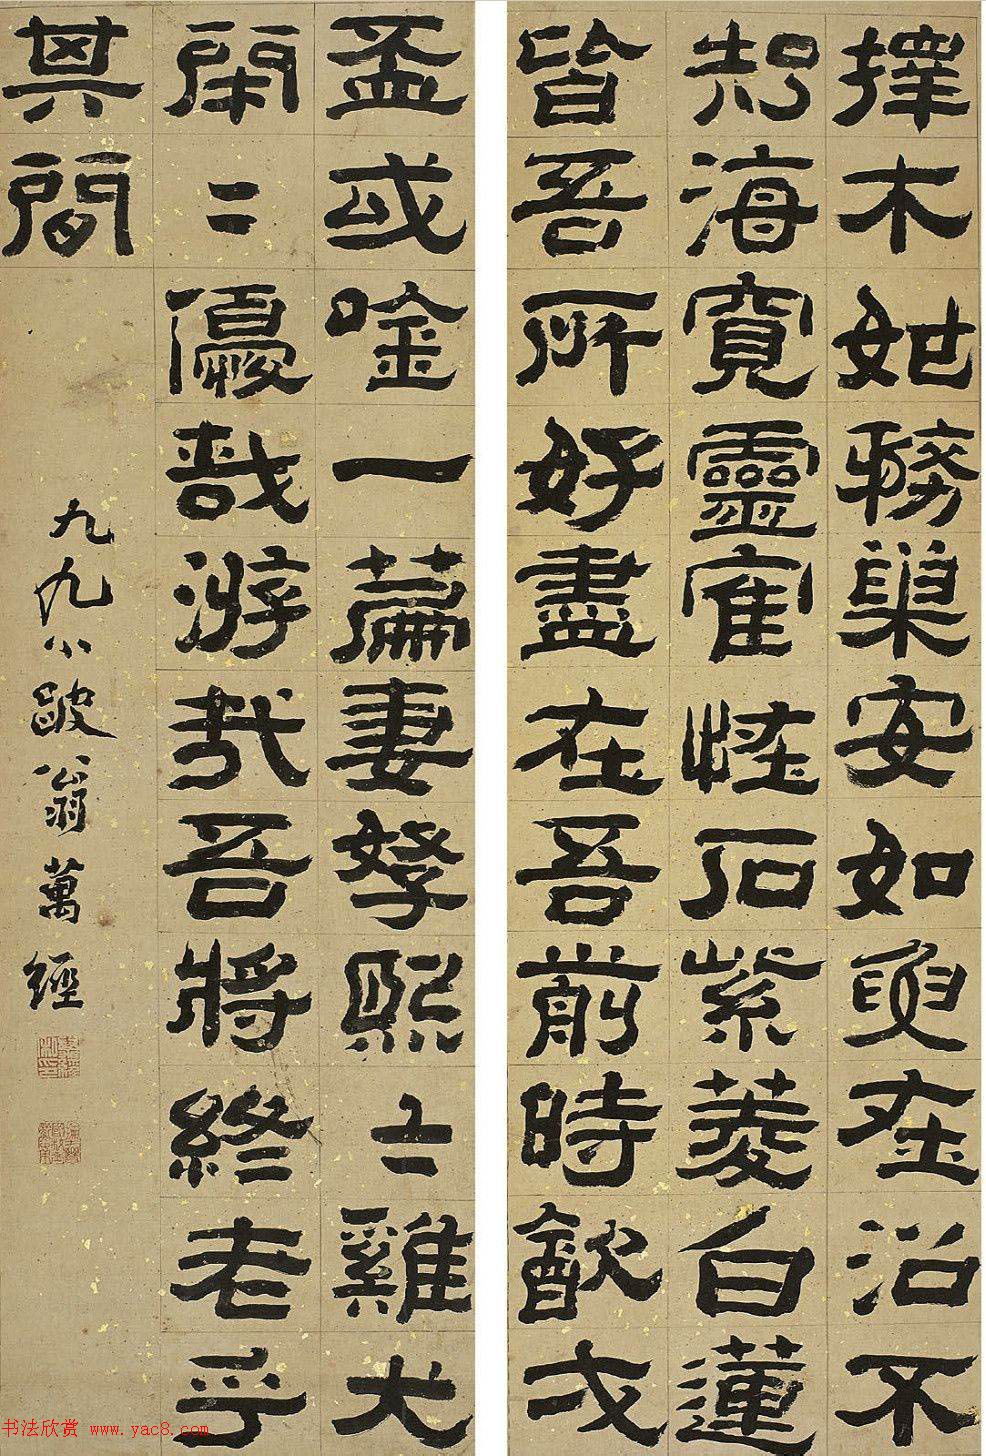 擇木姑務巢安如黽在沼不
知海寬靈隺怪石紫菱白蓮
皆吾所好盡在吾前時飲弌
盃或唫一篇妻孥熙〻雞犬
閑〻優哉游哉吾將終老乎
其間
九九小跛翁萬經
书法欣赏 www.yac8.com